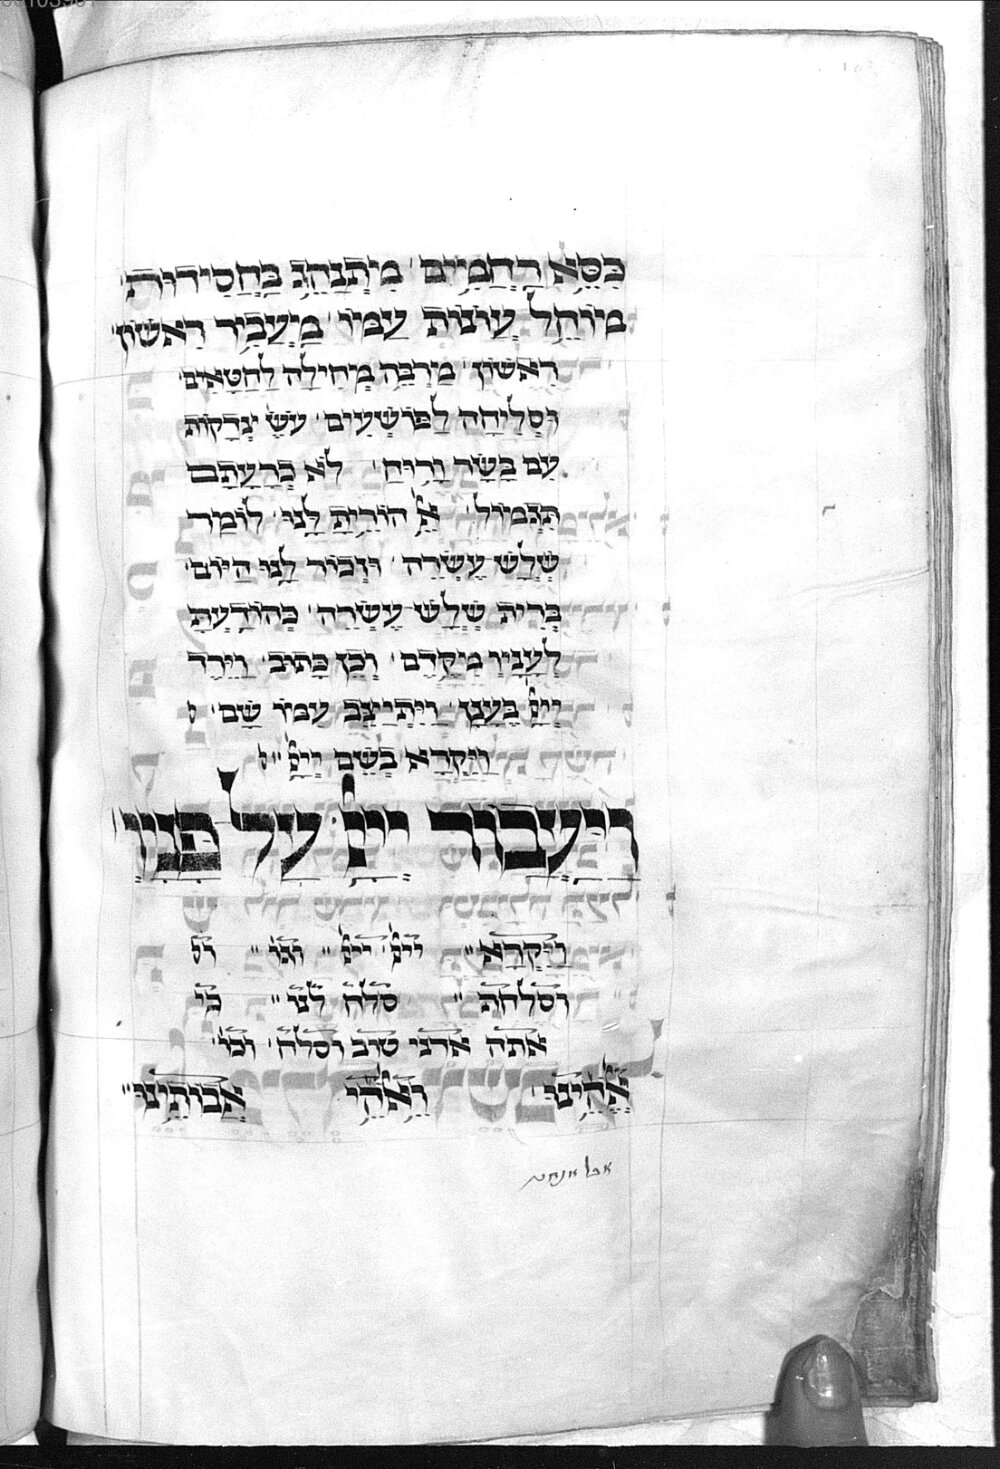 כִּסֵּא רַחֲמִים׳ מִתְנַהֵג בַּחֲסִידוּת׳
מוֹחֵל עֲוֹנוֹת עַמּוֹ׳ מַעֲבִיר רִאשׁוֹן׳
רִאשׁוֹן׳ מַרְבֶּה מְחִילָה לַחַטָּאִים׳
וּסְלִיחָה לַפּוֹשְׁעִים׳ עֹשֶׂ צְדָקוֹת
עִם בָּשָׂר וָרוּחַ׳ לֹא כְרָעָתָם
תִּגְמוֹל׳ אֵל הוֹרֵיתָ לָּנוּ׳ לוֹמַר
שְׁלֹשׁ עֶשְׂרֵה׳ וּזְכוֹר לָנוּ הַיּוֹם׳
בְּרִית שְׁלֹשׁ עֶשְׂרֵה׳ כְּהוֹדַעְתָּ
לֶעָנָיו מִקֶּדֶם׳ וְכֵן כָּתוּב׳ וַיֵּרֶד
יְיָ בֶּעָנָן׳ וַיִּתְיַצֵּב עִמּוֹ שָׁם׳
וַיִּקְרָא בְשֵׁם יְיָ״
וַיַּעֲבוֹר יְיָ עַל פָּנָיו׳
וַיִּקְרָא״ ייי׳ ייי״ וגו׳״
וסלחת״ סלח לנו״ כי
אתה אדני טוב וסלח׳ וכו׳
אֱלֹהֵינוּ׳ וֵאלֹהֵי אֲבוֹתֵינוּ״
אבל אנחנו